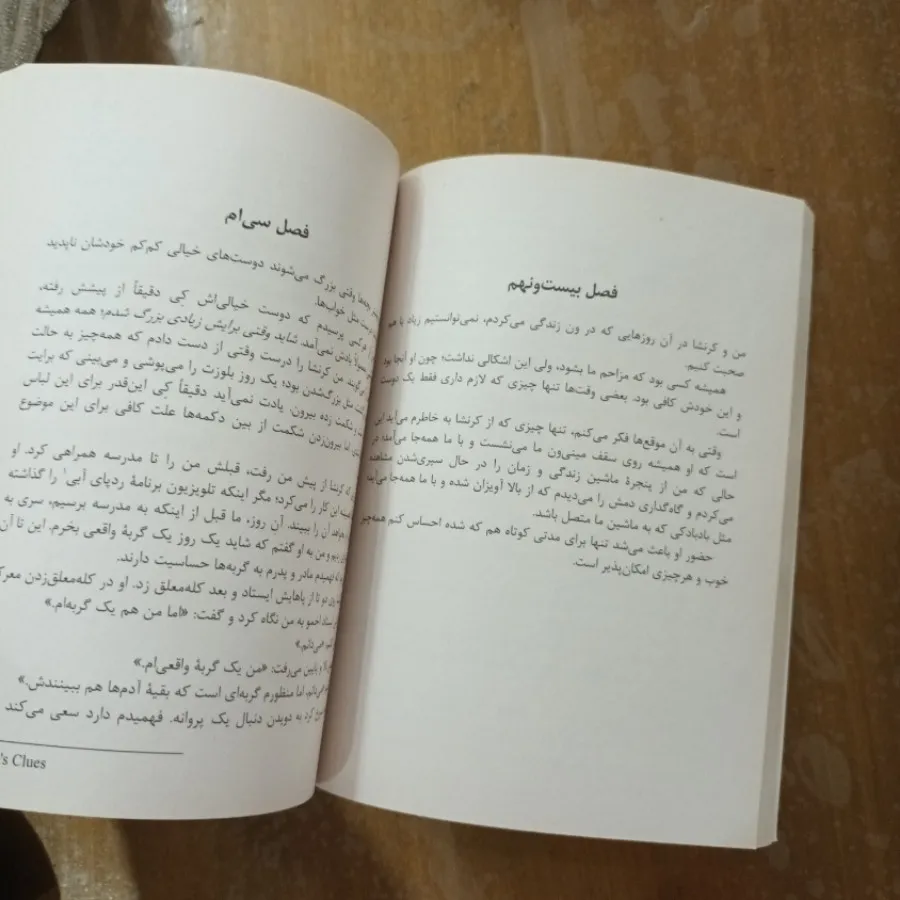 فصل بیست‌ونهم
من و کرنشا در آن روزهایی که در ون زندگی می‌کردم، نمی‌توانستیم زیاد با هم
صحبت کنیم.
همیشه کسی بود که مزاحم ما بشود، ولی این اشکالی نداشت؛ چون او آنجا بود
و این خودش کافی بود. بعضی وقت‌ها تنها چیزی که لازم داری فقط یک دوست
است.
وقتی به آن موقع‌ها فکر می‌کنم، تنها چیزی که از کرنشا به خاطرم می‌آید این
است که او همیشه روی سقف مینی‌ون ما می‌نشست و با ما همه‌جا می‌آمد؛ در
حالی که من از پنجرهٔ ماشین زندگی و زمان را در حال سپری‌شدن مشاهده
می‌کردم و گاه‌گداری دمش را می‌دیدم که از بالا آویزان شده و با ما همه‌جا می‌آید،
مثل بادبادکی که به ماشین ما متصل باشد.
حضور او باعث می‌شد تنها برای مدتی کوتاه هم که شده احساس کنم همه‌چیز
خوب و هرچیزی امکان‌پذیر است.
فصل سی‌ام
وقتی بزرگ می‌شوند دوست‌های خیالی کم‌کم خودشان ناپدید
مثل خواب‌ها.
پرسیدم که دوست خیالی‌اش کِی دقیقاً از پیشش رفته،
یادش نمی‌آمد. شاید وقتی برایش زیادی بزرگ شدم؛ همه همیشه
من کرنشا را درست وقتی از دست دادم که همه‌چیز به حالت
مثل بزرگ‌شدن بود؛ یک روز بلوزت را می‌پوشی و می‌بینی که برایت
و شکمت زده بیرون. یادت نمی‌آید دقیقاً کِی این‌قدر برای این لباس
اما بیرون‌زدن شکمت از بین دکمه‌ها علت کافی برای این موضوع
که کرنشا از پیش من رفت، قبلش من را تا مدرسه همراهی کرد. او
این کار را می‌کرد؛ مگر اینکه تلویزیون برنامهٔ ردپای آبی۱ را گذاشته
آن را ببیند. آن روز، ما قبل از اینکه به مدرسه برسیم، سری به
و من به او گفتم که شاید یک روز یک گربهٔ واقعی بخرم. این تا آن
که فهمیدم مادر و پدرم به گربه‌ها حساسیت دارند.
دو تا از پاهایش ایستاد و بعد کله‌معلق زد. او در کله‌معلق‌زدن
به من نگاه کرد و گفت: «اما من هم یک گربه‌ام.»
«می‌دانم.»
و پایین می‌رفت: «من یک گربهٔ واقعی‌ام.»
اما منظورم گربه‌ای است که بقیهٔ آدم‌ها هم ببینندش.»
کرد به دویدن دنبال یک پروانه. فهمیدم دارد سعی می‌کند
's Clues